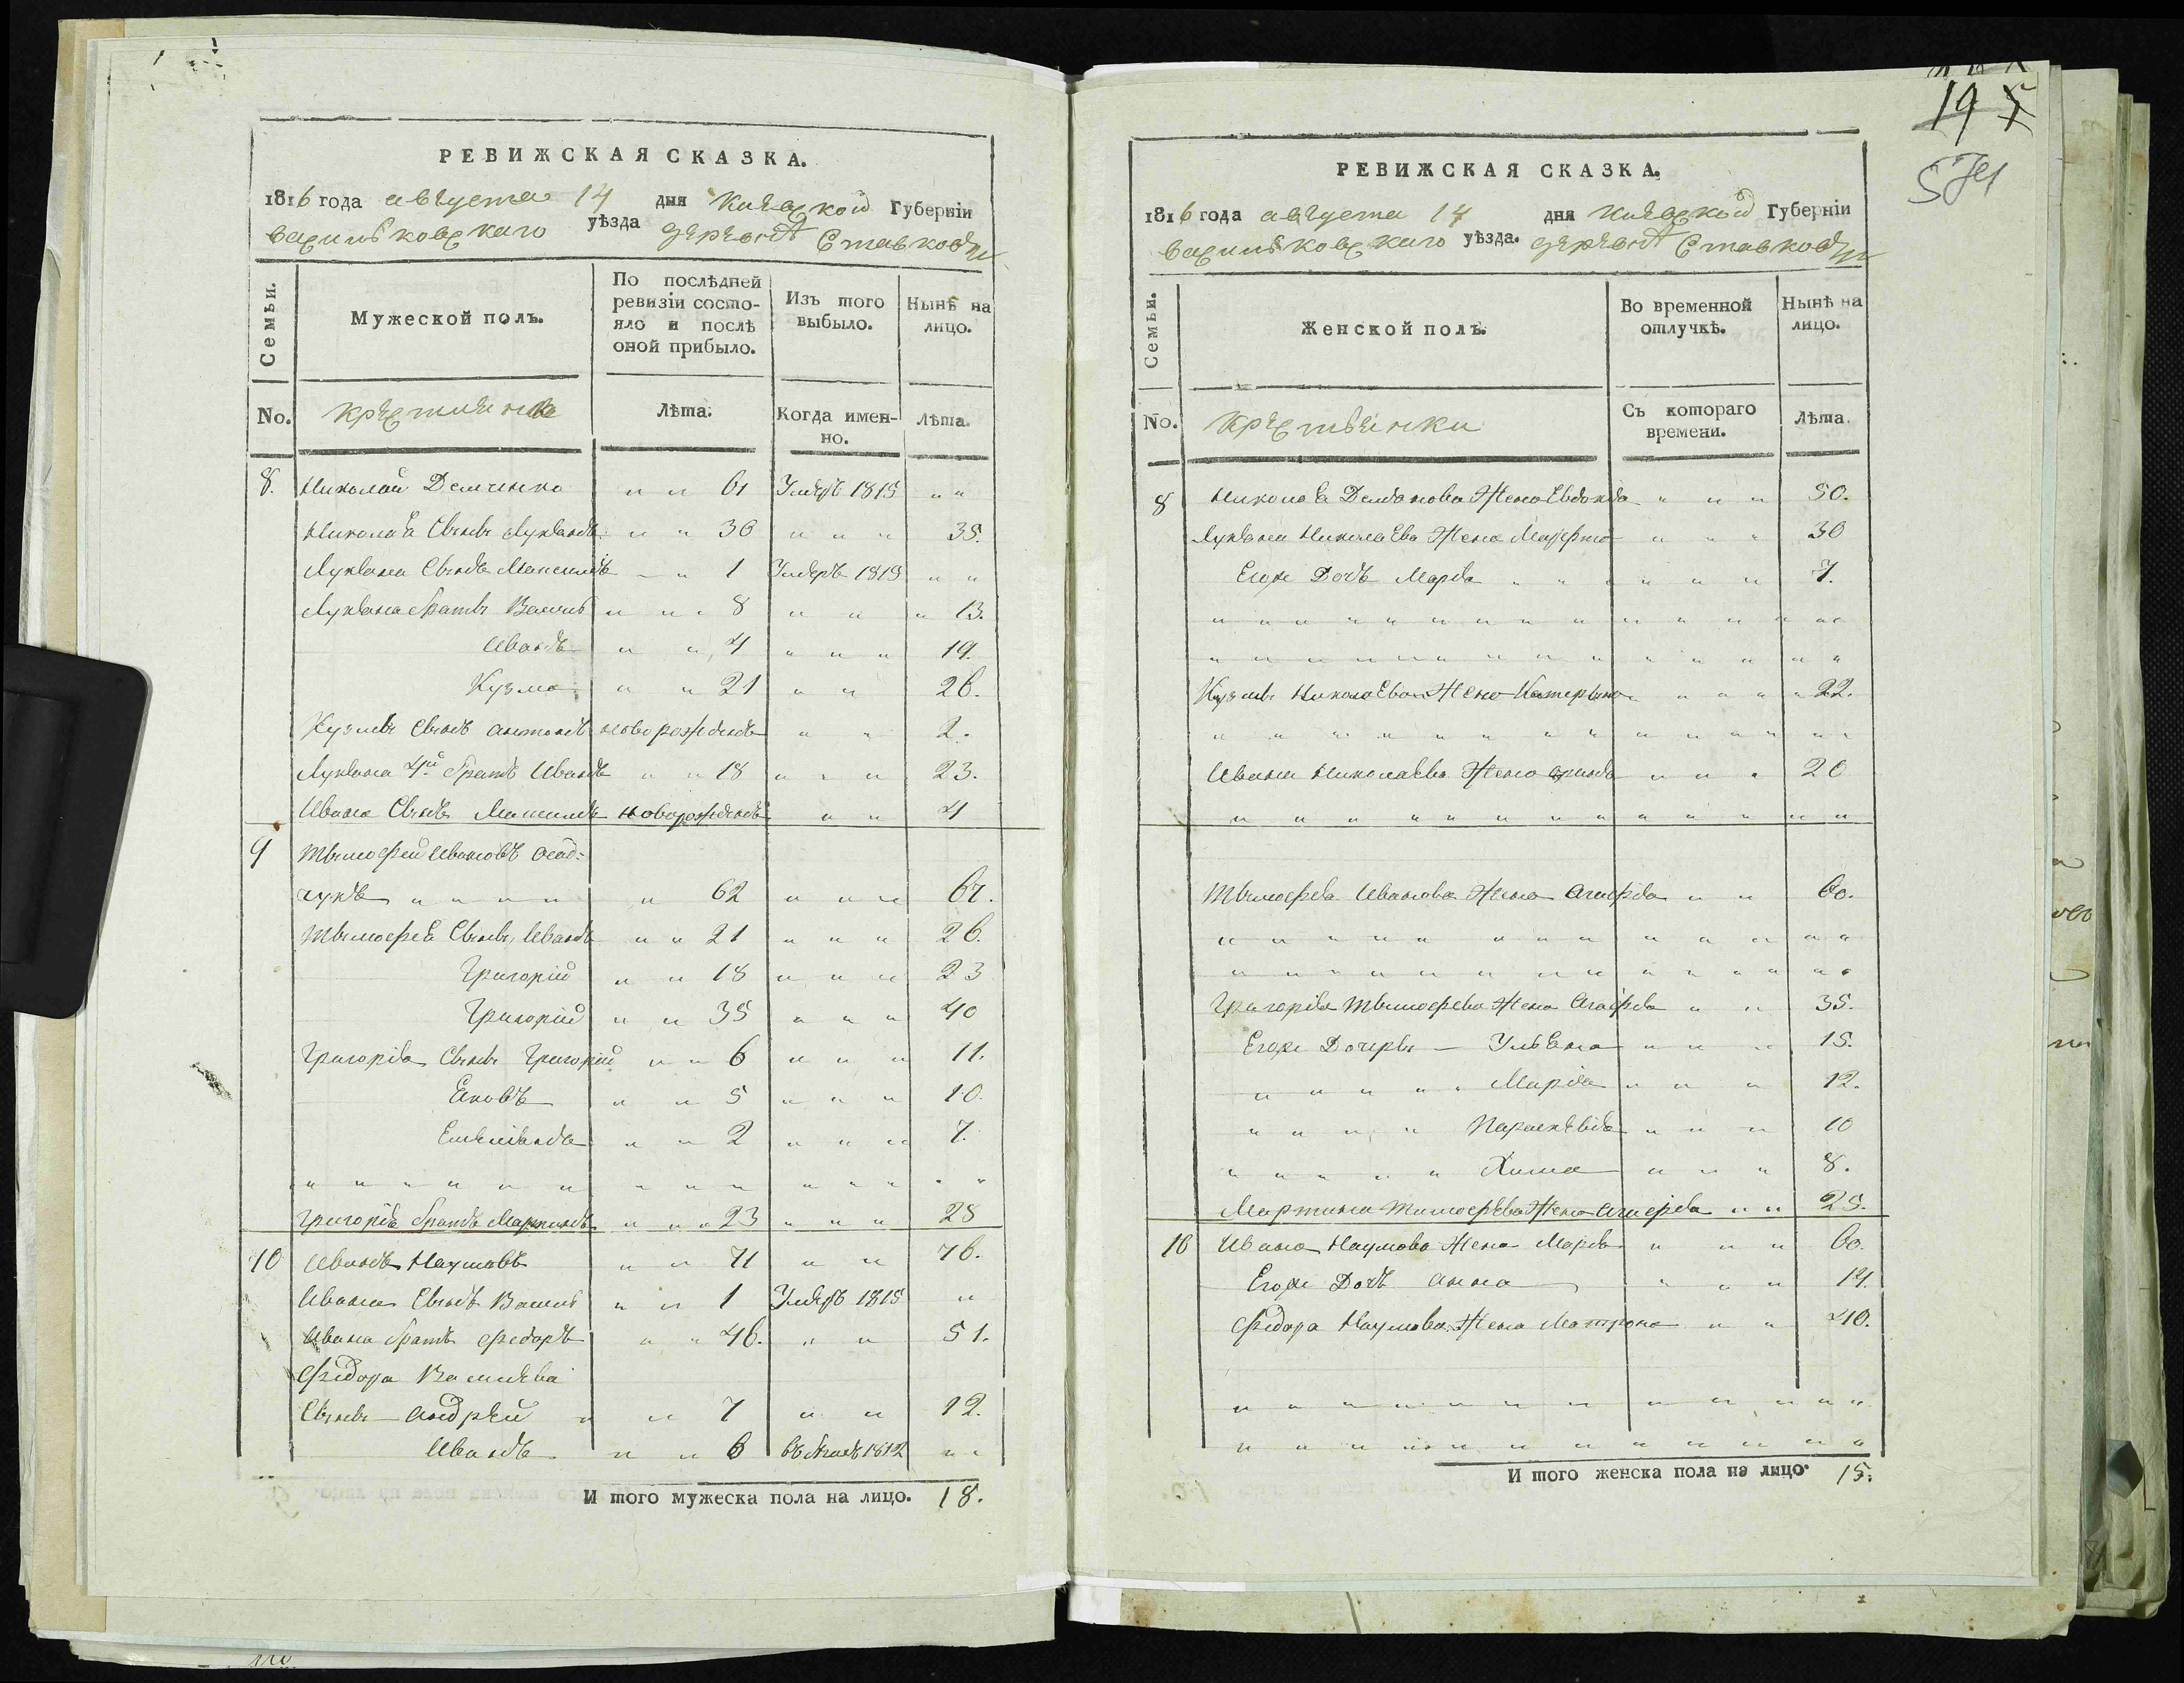 РЕВИЖСКАЯ СКАЗКА.
1816 года августа 14 дня Киевской Губерніи
васильковскаго уѣзда деревнѣ Ставковки
Семьи.
Мужеской полъ.
По послѣдней ревизіи состояло и послѣ оной прибыло.
Изъ того выбыло.
Нынѣ на лицо.
No. крестияне Лѣта. Когда именно. Лѣта.
8. Николай Демченко " " 61 Умеръ 1815 " "
Николая Сынъ Лукьянъ " " 30 " " " 35.
Лукьяна Сынъ Максимъ " 1 Умеръ 1813 " "
Лукьяна братъ Василь " " " 8 " " " 13.
Иванъ " " 4 " " " 19.
Кузма " " 21 " " 26.
Кузмы Сынъ антонъ новорожденъ " " 2.
Лукьяна 4й братъ Иванъ " " 18 " " " 23.
Ивана Сынъ Максимъ новорожденъ " " 4
9 Тымофей Ивановъ Осад=
чукъ " " " " " 62 " " " 67.
Тымофея Сыны Иванъ " " 21 " " " 26.
Григорій " " 18 " " " 23
Григорій " " 35 " " " 40
Григорія Сыны Григорій " " 6 " " " 11.
Яковъ " " 5 " " " 10.
Емеліянъ " " 2 " " " 7.
" " " " " " " " " " " " " "
Григорія братъ Мартинъ " " " 23 " " " 28
10 Иванъ Наумовъ " " 71 " " 76.
Ивана Сынъ Василь " " 1 Умеръ 1815 "
Ивана братъ федоръ " " 46. " " 51.
Федора Василева
Сыны андрей " " 7 " " 12.
Иванъ " " 6 1812 " "
И того мужеска пола на лицо. 18.
РЕВИЖСКАЯ СКАЗКА.
1816 года августа 14 дня Киевской Губерніи
васильковскаго уѣзда. деревнѣ Ставковки
Семьи.
Женской полъ.
Во временной отлучкѣ.
Нынѣ на лицо.
No. Крестьянки Съ котораго времени. Лѣта.
8 Николая Жена Евдокія " " " 50.
Лукьяна Николаева Жена " " " 30
Егоже Дочь Марія " " " " " " 7.
" " " " " " " " " " " " " " "
" " " " " " " " " " " " " " "
Кузмы Николаева Жена Катерына " " " " 22.
" " " " " " " " " " " " " " "
Ивана Николаева Жена " " " 20
" " " " " " " " " " " " " " "
Тымофея Иванова Жена Агафія " " 60.
" " " " " " " " " " " " "
" " " " " " " " " " " " " "
Григорія Тымофева Жена Агафія " " 35.
Егоже Дочеры — Ульяна " " " 15.
" " " " " Марія " " " 12.
" " " " Параскевія " " " 10
" " " " " Хима " " " 8.
Мартина Тимофева Жена Агафія " " 25.
10 Ивана Наумова Жена Марія " " " 60.
Егоже Дочь анна " " " 14.
Федора Наумова Жена Матрона " " 40.
" " " " " " " " " " " " " "
" " " " " " " " " " " " " "
И того женска пола на лицо. 15.